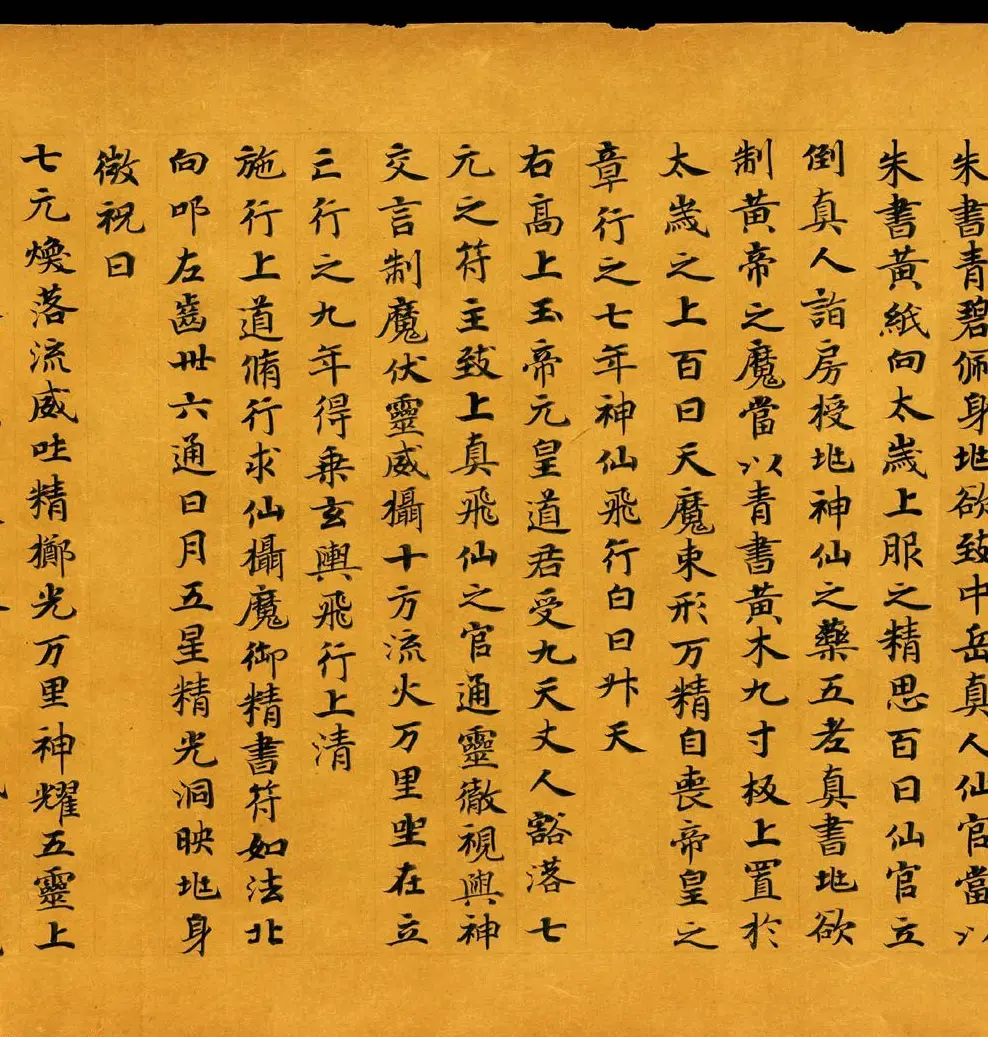 朱書青碧佩身地欲致中岳真人仙官當以
朱書黃紙向太歲上服之精思百日仙官立
倒真人詣房授地神仙之藥五老真書地欲
制黃帝之魔當以青書黃木九寸板上置於
太歲之上百日天魔束形万精自喪帝皇之
章行之七年神仙飛行白日升天
右高上玉帝元皇道君受九天丈人豁落七
元之符主致上真飛仙之官通靈徹視與神
交言制魔伏靈威攝十方流火万里坐在立
亡行之九年得乘玄輿飛行上清
施行上道脩行求仙攝魔御精書符如法北
向叩左齒卅六通日月五星精光洞映地身
微祝曰
七元煥落流威吐精擲光万里神耀五靈上